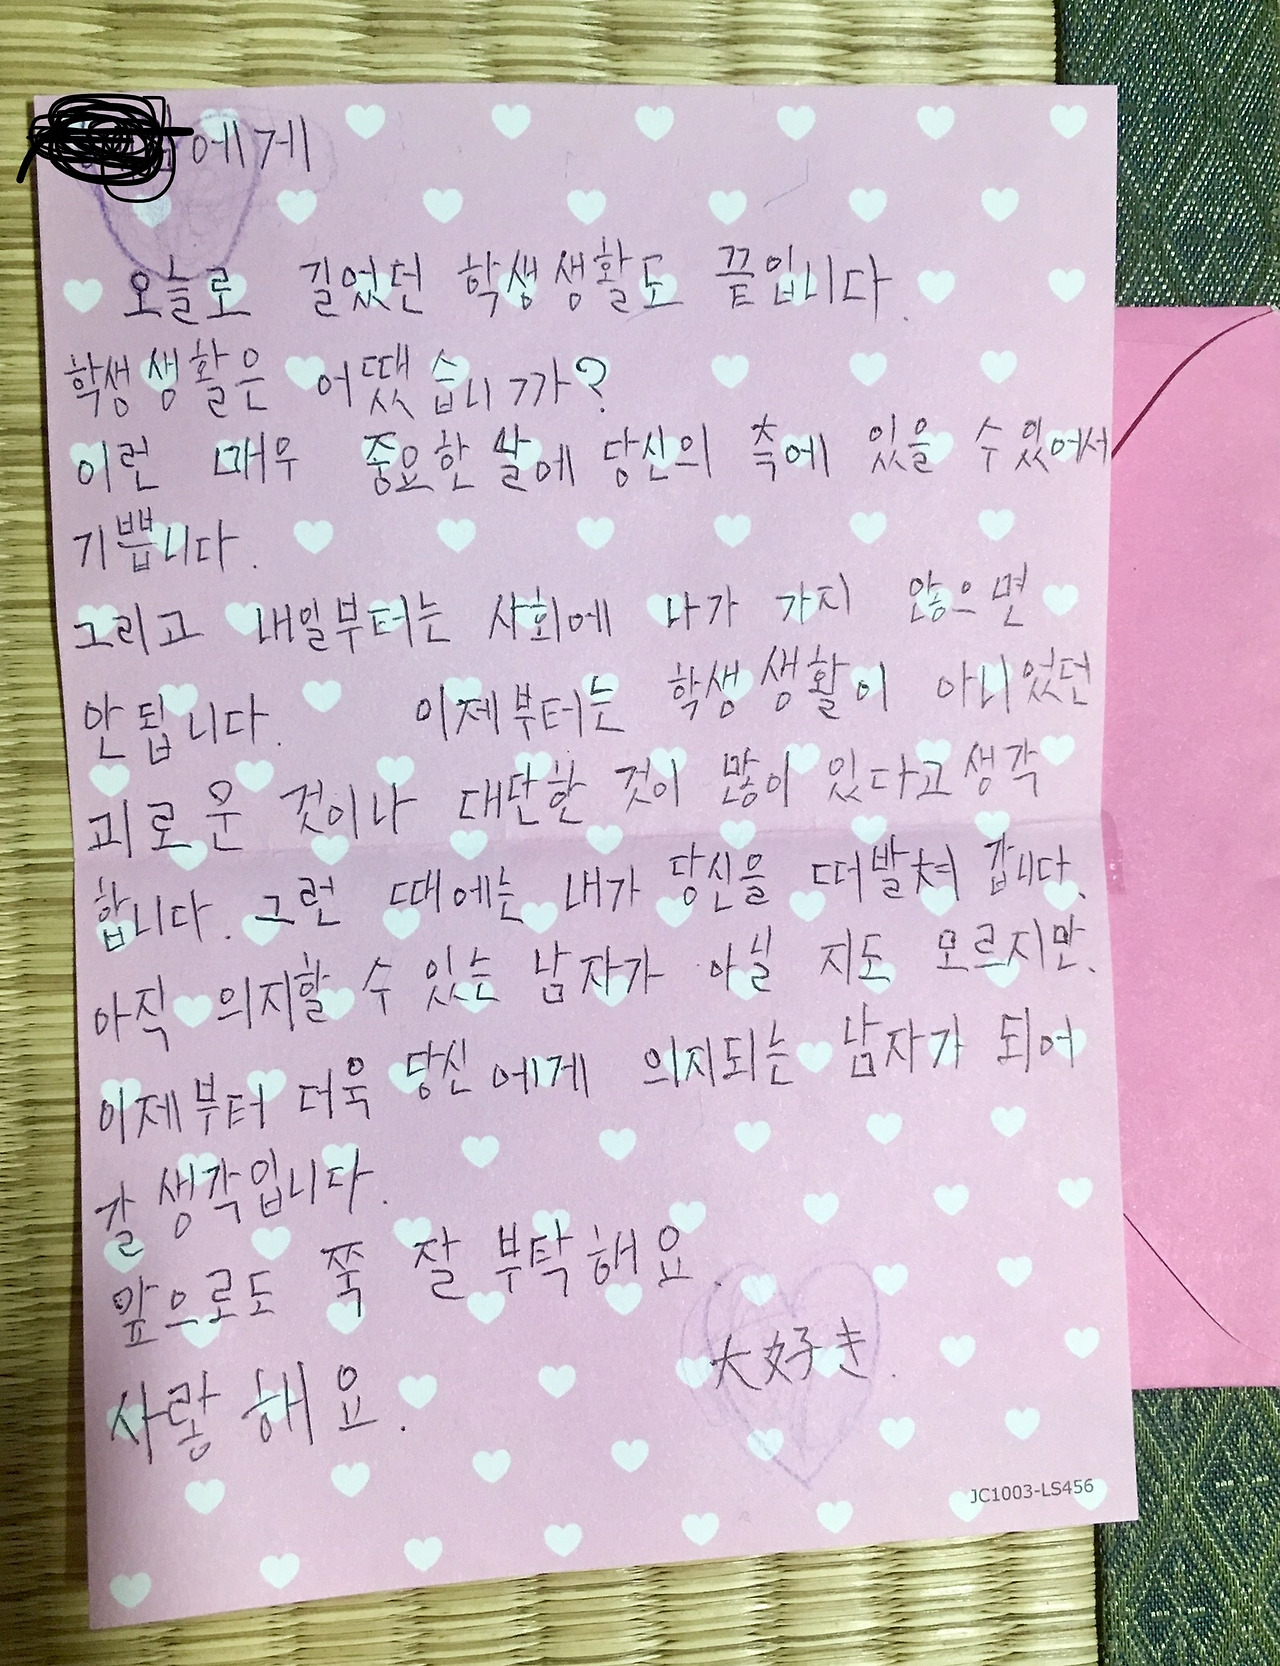 에게
오늘로 길었던 학생생활도 끝입니다.
학생생활은 어땠습니까?
이런 매우 중요한 날에 당신의 측에 있을 수 있어서
기쁩니다.
그리고 내일부터는 사회에 나가 가지 않으면
안됩니다. 이제부터는 학생생활이 아니었던
괴로운 것이나 대단한 것이 많이 있다고 생각
합니다. 그런 때에는 내가 당신을 떠발쳐 갑니다.
아직 의지할 수 있는 남자가 아닐 지도 모르지만.
이제부터 더욱 당신에게 의지되는 남자가 되어
갈 생각입니다.
앞으로도 쭉 잘 부탁해요.
大好き.
사랑해요.
JC1003-LS456